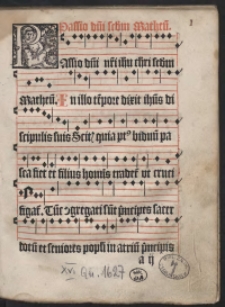 Passio dñi scđm Matheũ.
PAssio dñi nr̃i ihu chri scđm
Matheũ. In illo tẽpore dixit ihũs di
scipulis suis Scitꝭ quia pt᷒ biduũ pa
sca fiet et filius homĩs tradet᷑ ut cruci
figat᷑. Tũc ꝯgregati sũt p̃ncipes sacer
dotũ et seniores popľi in atriũ p̃ncipis
a ij
XV. Qu. 1627